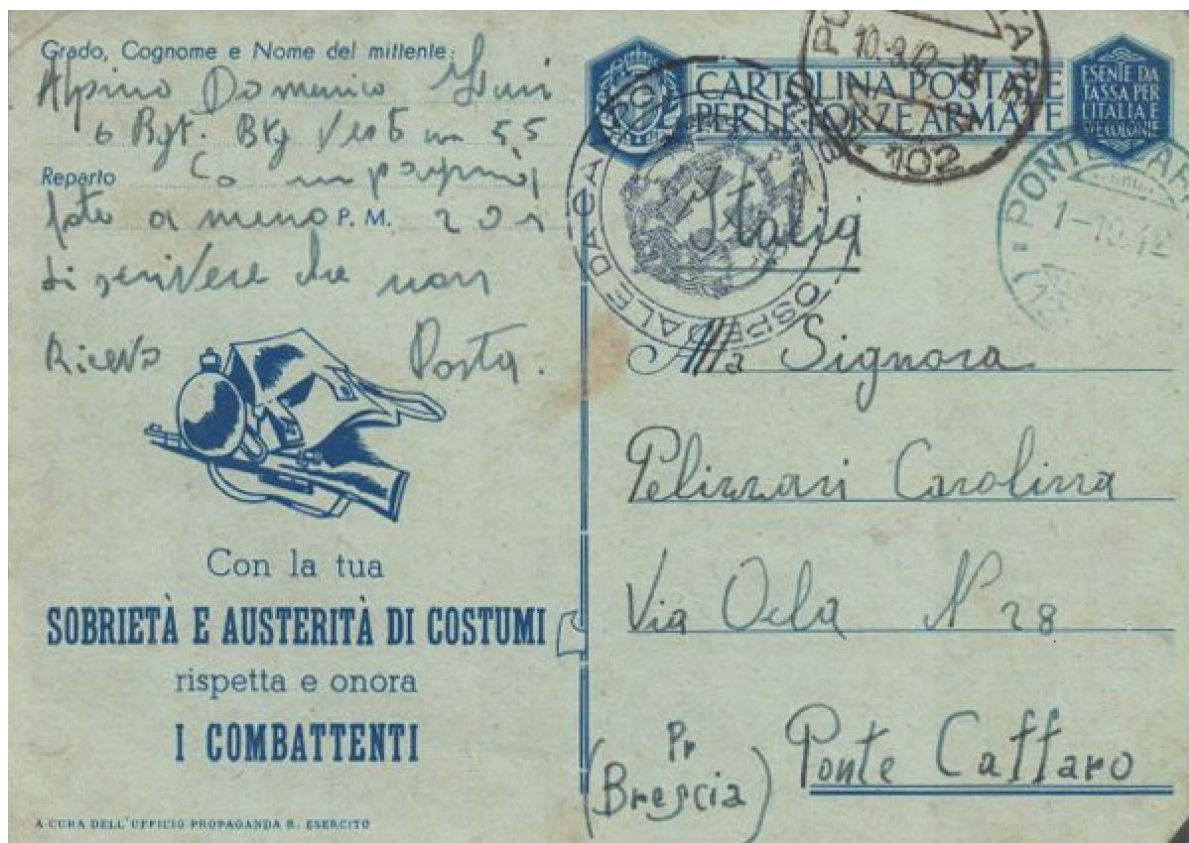 Grado, Cognome e Nome del mittente:
Alpino Domenico
6 Rgt. Btg Vest 55
Reparto Co
fate a meno P. M. 201
di scrivere che non
Ricevo Posta.
Con la tua
SOBRIETÀ E AUSTERITÀ DI COSTUMI
rispetta e onora
I COMBATTENTI
A CURA DELL'UFFICIO PROPAGANDA R. ESERCITO
CARTOLINA POSTALE
PER LE FORZE ARMATE
ESENTE DA
TASSA PER
L'ITALIA E
102
OSPEDALE DA CA
PONTE
1-10.42
Italia
Alla Signora
Pelizzari Carolina
Via Orla N 28
Ponte Caffaro
(Pr
Brescia)